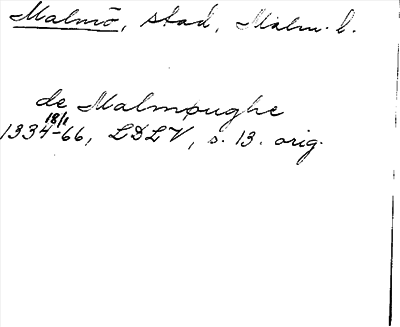 Malmö, stad, Malm. l.
de Malmpughe
18/1
1334-66, LDLV, s. 13. orig.